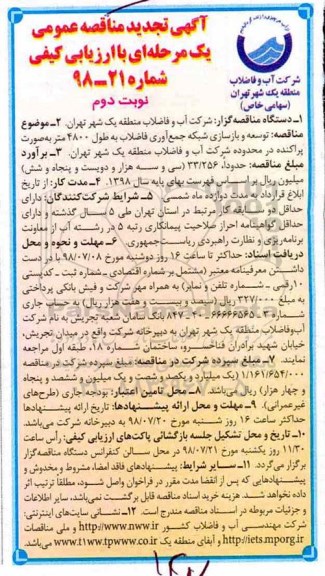 آگهی تجدید مناقصه عمومی
یک مرحله‌ای با ارزیابی کیفی
شماره ۲۱-۹۸
نوبت دوم
شرکت آب و فاضلاب
منطقه یک شهر تهران
(سهامی خاص)
۱ـ دستگاه مناقصه‌گزار: شرکت آب و فاضلاب منطقه یک شهر تهران. ۲ـ موضوع
مناقصه: توسعه و بازسازی شبکه جمع‌آوری فاضلاب به طول ۴۸۰۰ متر به‌صورت
پراکنده در محدوده شرکت آب و فاضلاب منطقه یک شهر تهران. ۳ـ برآورد
مبلغ مناقصه: حدوداً، ۳۳/۲۵۶ (سی و سه هزار و دویست و پنجاه و شش)
میلیون ریال بر اساس فهرست بهای پایه سال ۱۳۹۸. ۴ـ مدت کار: از تاریخ
ابلاغ قرارداد به مدت دوازده ماه شمسی. ۵ـ شرایط شرکت‌کنندگان: دارای
حداقل سابقه کار مرتبط در استان تهران طی سال گذشته و دارای
حداقل گواهینامه احراز صلاحیت پیمانکاری رتبه ۵ در رشته آب از معاونت
برنامه‌ریزی و نظارت راهبردی ریاست‌جمهوری. ۶ـ مهلت و نحوه و محل
دریافت اسناد: حداکثر تا ساعت ۱۶ روز دوشنبه مورخ ۹۸/۰۷/۰۸ با در دست
داشتن معرفینامه معتبر (مشتمل بر شماره اقتصادی ـ شماره ثبت ـ کدپستی
۱۰رقمی ـ شماره تلفن و نمابر) به همراه مهر شرکت و فیش بانکی پرداختی
به مبلغ ۲۲۷/۰۰۰ ریال (سیصد و بیست و هفت هزار ریال) به حساب جاری
شماره بانک سامان شعبه تجریش به نام شرکت
آب‌وفاضلاب منطقه یک شهر تهران به دبیرخانه شرکت واقع در میدان تجریش،
خیابان شهید برادران فناخسرو، ساختمان شماره ۱۸، طبقه اول مراجعه
نمایند. ۷ـ مبلغ سپرده شرکت در مناقصه: مبلغ سپرده شرکت در مناقصه
۱/۱۶۱/۶۵۴/۰۰۰ (یک میلیارد و یکصد و شصت و یک میلیون و ششصد و پنجاه
و چهار هزار) ریال می‌باشد. ۸ـ محل تامین اعتبار: بودجه جاری (طرح‌های
غیرعمرانی). ۹ـ مهلت و محل ارائه پیشنهادها: تاریخ ارائه پیشنهادها
حداکثر ساعت ۱۶ روز شنبه مورخ ۹۸/۰۷/۲۰ به دبیرخانه شرکت می‌باشد.
۱۰ـ تاریخ و محل تشکیل جلسه بازگشائی پاکت‌های ارزیابی کیفی: رأس ساعت
۱۱/۳۰ روز یکشنبه مورخ ۹۸/۰۷/۲۱ در محل سالن کنفرانس دستگاه مناقصه‌گزار
برگزار می‌گردد. ۱۱ـ سایر شرایط: پیشنهادهای فاقد امضا، مشروط و مخدوش و
پیشنهادهایی که پس از انقضا مدت مقرر در فراخوان واصل شود، مطلقاً ترتیب اثر
داده نخواهد شد. هزینه خرید اسناد مناقصه قابل برگشت نمی‌باشد، سایر اطلاعات
و جزئیات مربوطه در اسناد مناقصه مندرج است. ۱۲ـ نشانی سایت‌های اینترنتی:
شرکت مهندسی آب و فاضلاب کشور http://www.nww.ir و ملی مناقصات
http://iets.mporg.ir و آبفای منطقه یک www.t1ww.tpww.co.ir می‌باشد.